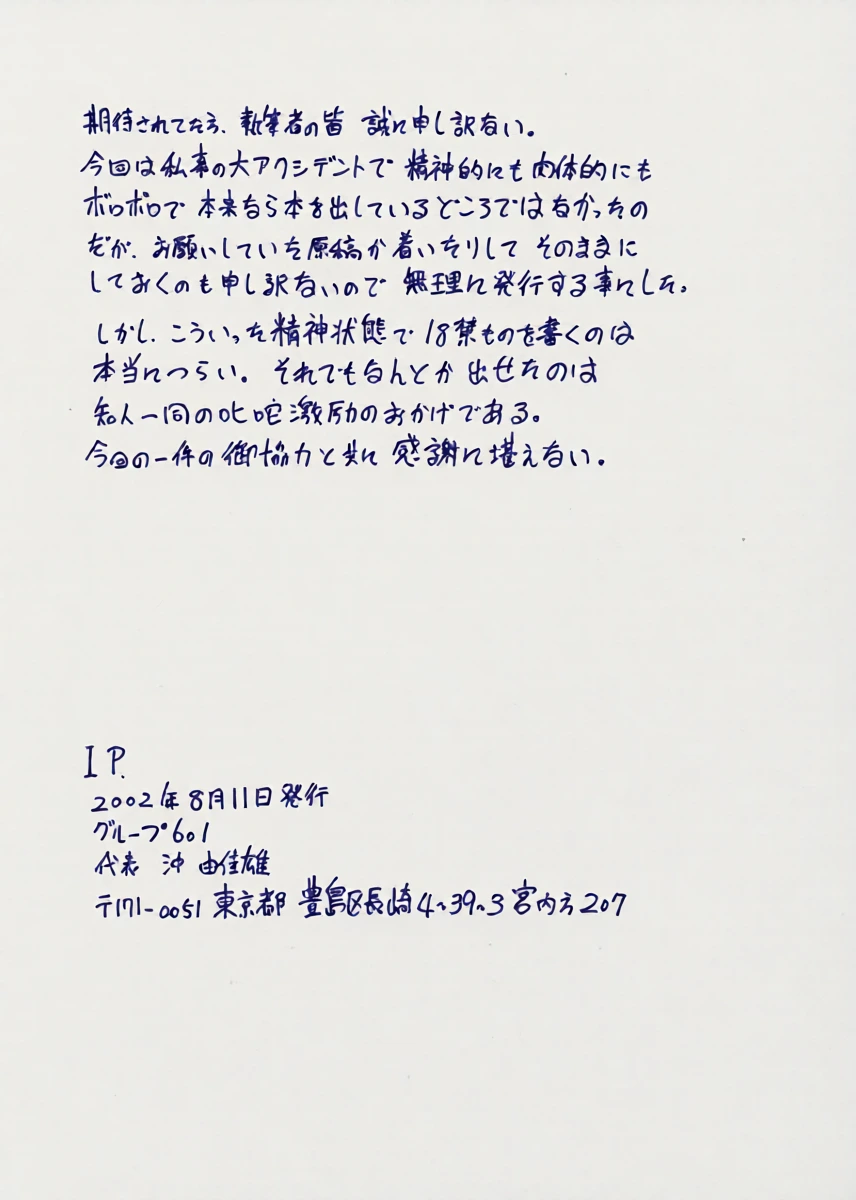 期待されてた方、執筆者の皆 誠に申し訳ない。
今回は私事の大アクシデントで 精神的にも肉体的にも
ボロボロで 本来なら本を出しているどころではなかったの
だが、お願いしていた原稿が着いたりして そのままに
しておくのも申し訳ないので 無理に発行する事にした。
しかし、こういった精神状態で 18禁ものを書くのは
本当につらい。それでもなんとか 出せたのは
知人一同の叱咤激励のおかげである。
今回の一件の御協力と共に 感謝に堪えない。
I P.
2002年8月11日発行
グループ601
代表 沖 由佳雄
〒171-0051 東京都 豊島区長崎4~39~3 宮内方207